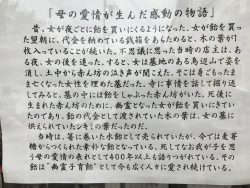 「母の愛情が生んだ感動の物語」
昔、女が夜ごとに飴を買いにくるようになった。女が飴を買った翌朝に、代金を納めている銭箱をあらためると、木の葉が1枚入っていることが続いた。不思議に思った当時の店主は、ある夜、女の後を追った。すると、女は墓地のある鳥辺山で姿を消し、土中から赤ん坊の泣き声が聞こえた。そこは身ごもったまま亡くなった女性を埋めた墓だった。寺に事情を話して掘り返してみると、墓の中には飴をしゃぶった赤ん坊がいた。死後に生まれた赤ん坊のために、幽霊となった女が飴を買いにきていたのであり、飴の代金として渡されていた木の葉は、女の墓に供えられていたシキミの葉だったのだ。
当時は、筆に巻いた水飴として売られていたが、今では麦芽糖からつくられた素朴な飴となっている。死してなお我が子を思う母の愛情の表れとして400年以上も語りつがれている。その飴は"幽霊子育飴"として今も広く人々に愛され続けている。